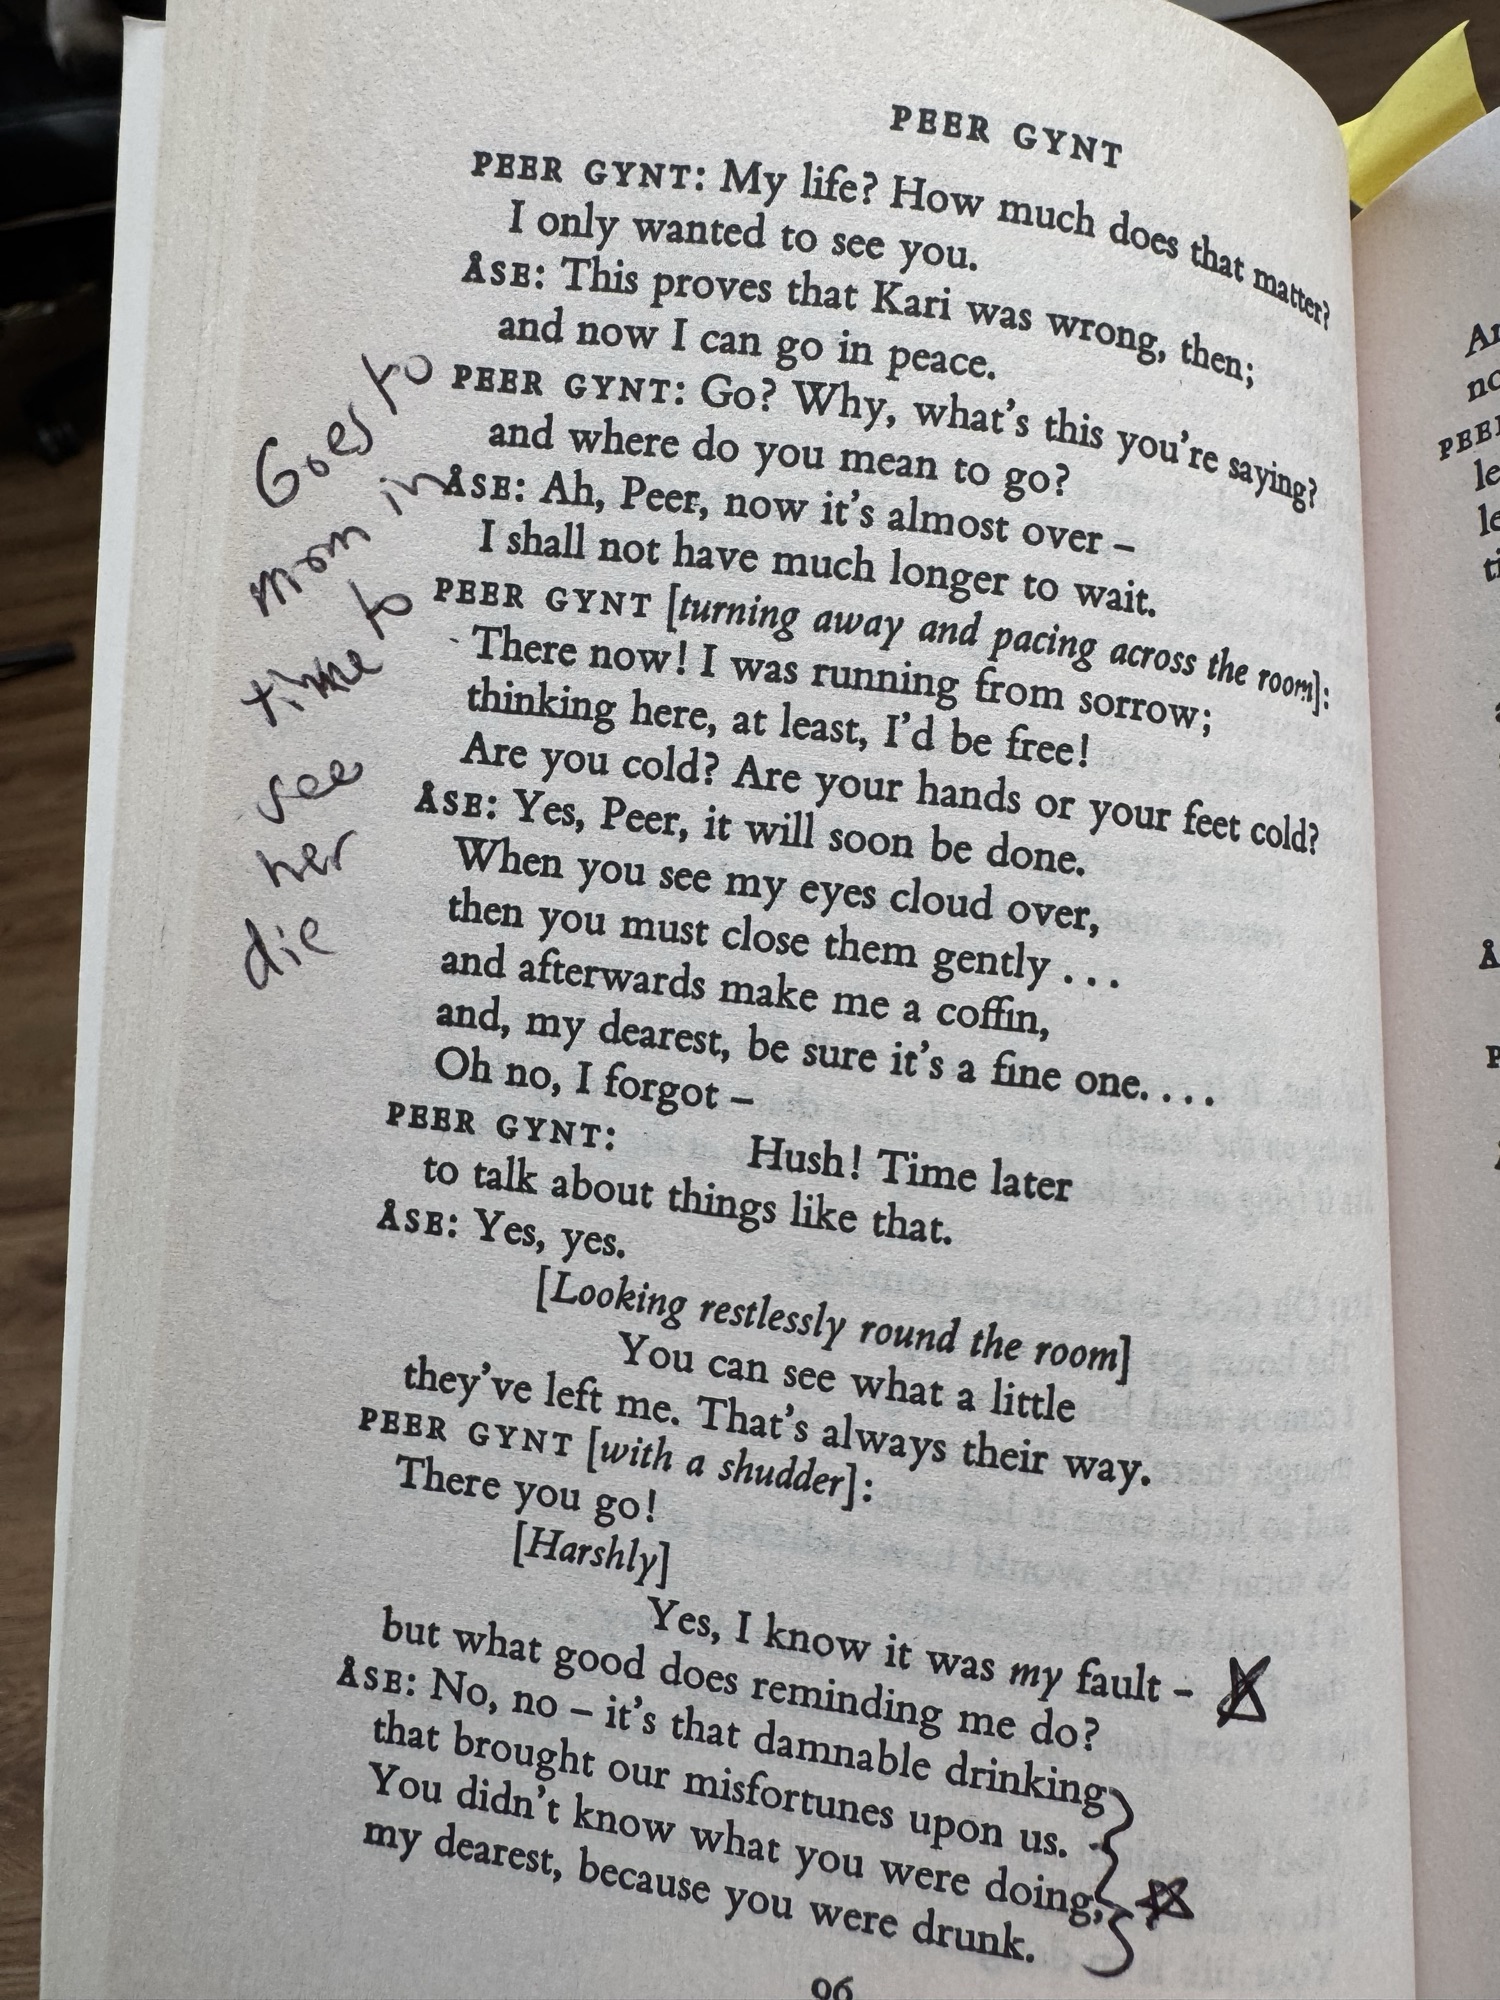 PEER GYNT
PEER GYNT: My life? How much does that matter?
I only wanted to see you.
ÅSE: This proves that Kari was wrong, then;
and now I can go in peace.
PEER GYNT: Go? Why, what's this you're saying?
and where do you mean to go?
ÅSE: Ah, Peer, now it's almost over –
I shall not have much longer to wait.
PEER GYNT [turning away and pacing across the room]:
There now! I was running from sorrow;
thinking here, at least, I'd be free!
Are you cold? Are your hands or your feet cold?
ÅSE: Yes, Peer, it will soon be done.
When you see my eyes cloud over,
then you must close them gently . . .
and afterwards make me a coffin,
and, my dearest, be sure it's a fine one. . . .
Oh no, I forgot –
PEER GYNT: Hush! Time later
to talk about things like that.
ÅSE: Yes, yes.
[Looking restlessly round the room]
You can see what a little
they've left me. That's always their way.
PEER GYNT [with a shudder]:
There you go!
[Harshly]
Yes, I know it was my fault –
but what good does reminding me do?
ÅSE: No, no – it's that damnable drinking
that brought our misfortunes upon us.
You didn't know what you were doing,
my dearest, because you were drunk.
96
Goes to
mom in
time to
see
her
die